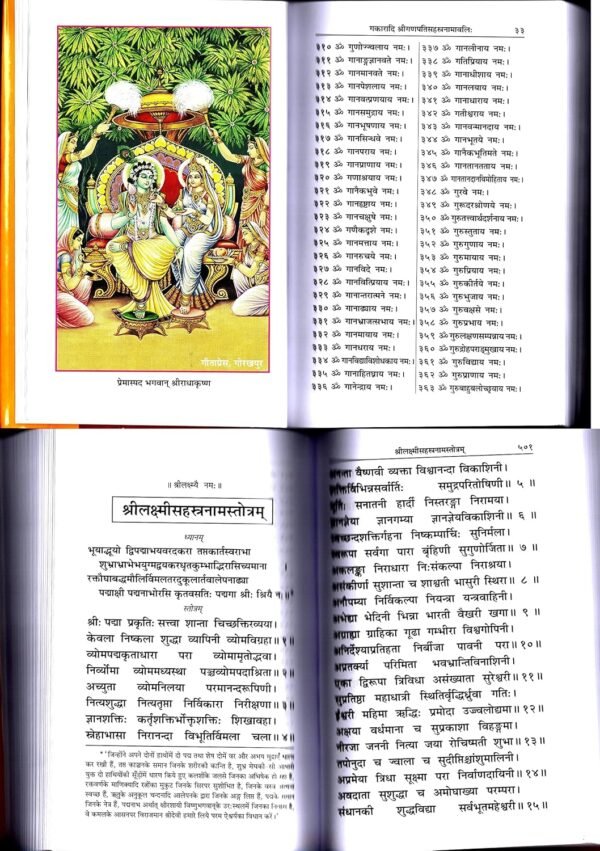 गीताप्रेस, गोरखपुर
प्रेमास्पद भगवान् श्रीराधाकृष्ण
गकारादि श्रीगणपतिसहस्रनामावलिः ३३
३१० ॐ गुणोज्ज्वलाय नमः।
३११ ॐ गानाङ्गज्ञानवते नमः।
३१२ ॐ गानमानवते नमः।
३१३ ॐ गानपेशलाय नमः।
३१४ ॐ गानवत्प्रणयाय नमः।
३१५ ॐ गानसमुद्राय नमः।
३१६ ॐ गानभूषणाय नमः।
३१७ ॐ गानसिन्धवे नमः।
३१८ ॐ गानपराय नमः।
३१९ ॐ गानप्राणाय नमः।
३२० ॐ गणाश्रयाय नमः।
३२१ ॐ गानैकभुवे नमः।
३२२ ॐ गानहृष्टाय नमः।
३२३ ॐ गानचक्षुषे नमः।
३२४ ॐ गणैकदृशे नमः।
३२५ ॐ गानमत्ताय नमः।
३२६ ॐ गानरुचये नमः।
३२७ ॐ गानविदे नमः।
३२८ ॐ गानवित्प्रियाय नमः।
३२९ ॐ गानान्तरात्मने नमः।
३३० ॐ गानाढ्याय नमः।
३३१ ॐ गानभ्राजत्सभाय नमः।
३३२ ॐ गानमायाय नमः।
३३३ ॐ गानधराय नमः।
३३४ ॐ गानविद्याविशोधकाय नमः।
३३५ ॐ गानाहितघ्नाय नमः।
३३६ ॐ गानेन्द्राय नमः।
३३७ ॐ गानलीनाय नमः।
३३८ ॐ गतिप्रियाय नमः।
३३९ ॐ गानाधीशाय नमः।
३४० ॐ गानलयाय नमः।
३४१ ॐ गानाधाराय नमः।
३४२ ॐ गतीश्वराय नमः।
३४३ ॐ गानवन्मानदाय नमः।
३४४ ॐ गानभूतये नमः।
३४५ ॐ गानैकभूतिमते नमः।
३४६ ॐ गानतानतताय नमः।
३४७ ॐ गानतानदानविमोहिताय नमः।
३४८ ॐ गुरवे नमः।
३४९ ॐ गुरूदरश्रोणये नमः।
३५० ॐ गुरुतत्त्वार्थदर्शनाय नमः।
३५१ ॐ गुरुस्तुताय नमः।
३५२ ॐ गुरुगुणाय नमः।
३५३ ॐ गुरुमायाय नमः।
३५४ ॐ गुरुप्रियाय नमः।
३५५ ॐ गुरुकीर्तये नमः।
३५६ ॐ गुरुभुजाय नमः।
३५७ ॐ गुरुवक्षसे नमः।
३५८ ॐ गुरुप्रभाय नमः।
३५९ ॐ गुरुलक्षणसम्पन्नाय नमः।
३६० ॐ गुरुद्रोहपराङ्मुखाय नमः।
३६१ ॐ गुरुविद्याय नमः।
३६२ ॐ गुरुप्राणाय नमः।
३६३ ॐ गुरुबाहुबलोच्छ्रयाय नमः।
॥ श्रीलक्ष्म्यै नमः॥
श्रीलक्ष्मीसहस्रनामस्तोत्रम्
ध्यानम्
भूयाद्भूयो द्विपद्माभयवरदकरा तप्तकार्तस्वराभा
शुभ्राभ्राभेभयुग्मद्वयकरधृतकुम्भाद्भिरासिच्यमाना
रक्तौघाबद्धमौलिर्विमलतरदुकूलार्तवालेपनाढ्या
पद्माक्षी पद्मनाभोरसि कृतवसतिः पद्मगा श्रीः श्रियै नः॥*
स्तोत्रम्
श्रीः पद्मा प्रकृतिः सत्त्वा शान्ता चिच्छक्तिरव्यया।
केवला निष्कला शुद्धा व्यापिनी व्योमविग्रहा॥१॥
व्योमपद्मकृताधारा परा व्योमामृतोद्भवा।
निर्व्योमा व्योममध्यस्था पञ्चव्योमपदाश्रिता॥२॥
अच्युता व्योमनिलया परमानन्दरूपिणी।
नित्यशुद्धा नित्यतृप्ता निर्विकारा निरीक्षणा॥३॥
ज्ञानशक्तिः कर्तृशक्तिर्भोक्तृशक्तिः शिखावहा।
स्नेहाभासा निरानन्दा विभूतिर्विमला चला॥४॥
श्रीलक्ष्मीसहस्रनामस्तोत्रम् ५०१
अनन्ता वैष्णवी व्यक्ता विश्वानन्दा विकाशिनी।
शक्तिर्विभिन्नसर्वार्तिः समुद्रपरितोषिणी॥५॥
मूर्तिः सनातनी हार्दी निस्तरङ्गा निरामया।
ज्ञानज्ञेया ज्ञानगम्या ज्ञानज्ञेयविकासिनी॥६॥
स्वच्छन्दशक्तिर्गहना निष्कम्पार्चिः सुनिर्मला।
स्वरूपा सर्वगा पारा बृंहिणी सुगुणोर्जिता॥७॥
अकलङ्का निराधारा निःसंकल्पा निराश्रया।
असंकीर्णा सुशान्ता च शाश्वती भासुरी स्थिरा॥८॥
अनौपम्या निर्विकल्पा नियन्त्रा यन्त्रवाहिनी।
अभेद्या भेदिनी भिन्ना भारती वैखरी खगा॥९॥
अग्राह्या ग्राहिका गूढा गम्भीरा विश्वगोपिनी।
अनिर्देश्याप्रतिहता निर्बीजा पावनी परा॥१०॥
अप्रतर्क्या परिमिता भवभ्रान्तिविनाशिनी।
एका द्विरूपा त्रिविधा असंख्याता सुरेश्वरी॥११॥
सुप्रतिष्ठा महाधात्री स्थितिर्वृद्धिर्ध्रुवा गतिः।
ईश्वरी महिमा ऋद्धिः प्रमोदा उज्ज्वलोद्यमा॥१२॥
अक्षया वर्धमाना च सुप्रकाशा विहङ्गमा।
नीरजा जननी नित्या जया रोचिष्मती शुभा॥१३॥
तपोनुदा च ज्वाला च सुदीप्तिश्चांशुमालिनी।
अप्रमेया त्रिधा सूक्ष्मा परा निर्वाणदायिनी॥१४॥
अवदाता सुशुद्धा च अमोघाख्या परम्परा।
संधानकी शुद्धविद्या सर्वभूतमहेश्वरी॥१५॥